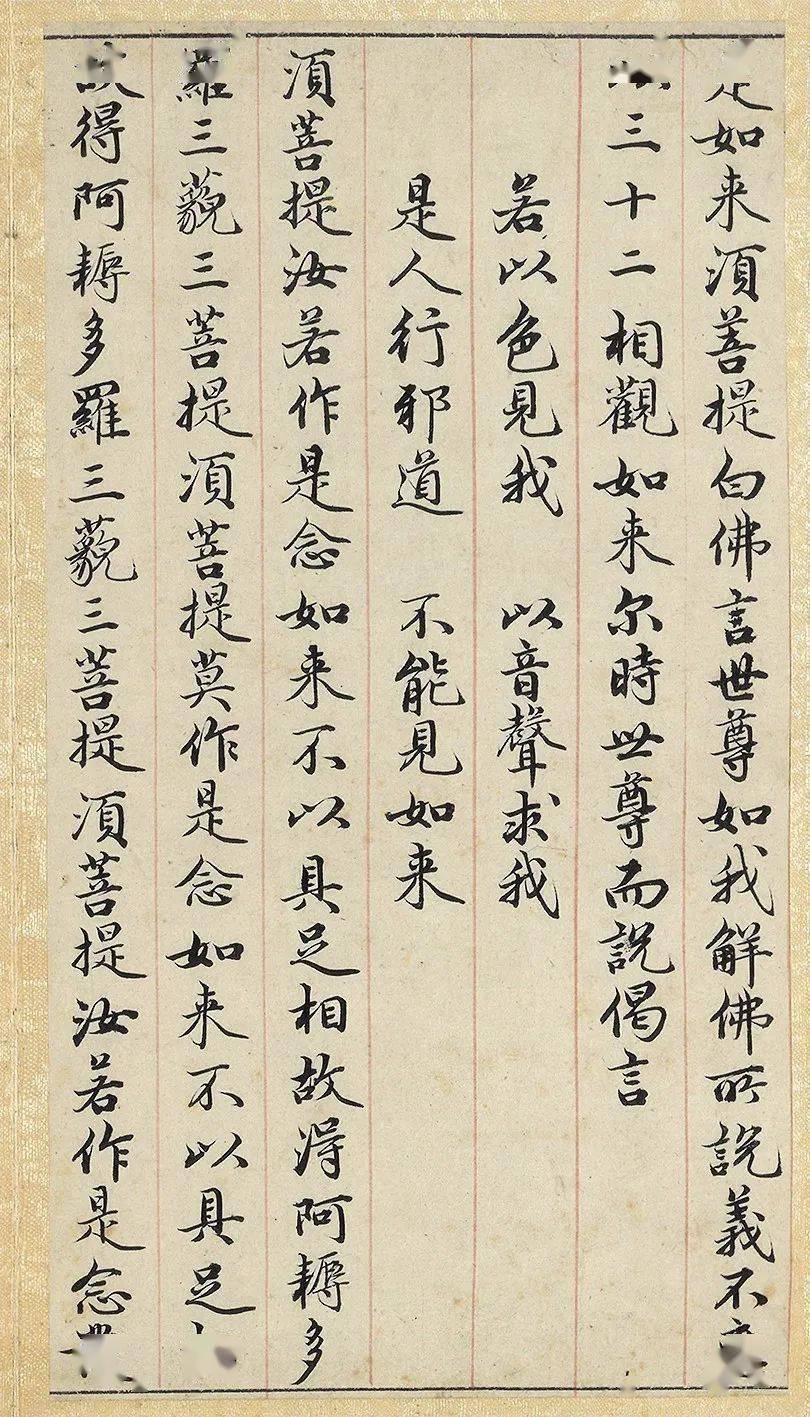 是如来須菩提白佛言世尊如我解佛所說義不
三十二相觀如来尔時世尊而說偈言
若以色見我　以音聲求我
是人行邪道　不能見如来
須菩提汝若作是念如来不以具足相故得阿耨多
羅三藐三菩提須菩提莫作是念如来不以具足
得阿耨多羅三藐三菩提須菩提汝若作是念